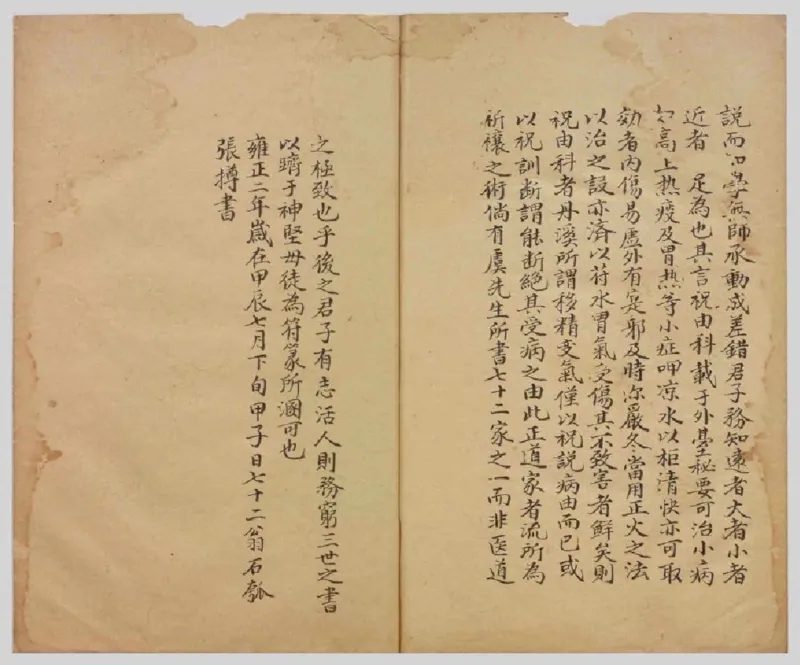 說而口學無師承動或差錯君子務知遠者大者小者
近者 足為也其言祝由科載于外臺秘要可治小病
如高上热疫及胃热等小症呷凉水以柜清快亦可取
効者内傷易虛外有寔邪及時沵嚴冬當用正火之法
以治之設亦濟以符水胃氣受傷其不致害者鮮矣則
祝由科者丹溪所謂移精变氣僅以祝說病由而已或
以祝訓断謂能断絕其受病之由此正道家者流所為
祈禳之術倘有虞先生所書七十二家之一而非医道
之極致也乎後之君子有志活人則務窮三世之書
以躋于神聖毋徒為符篆所溷可也
雍正二年歲在甲辰七月下旬甲子日七十二翁石瓠
張摶書